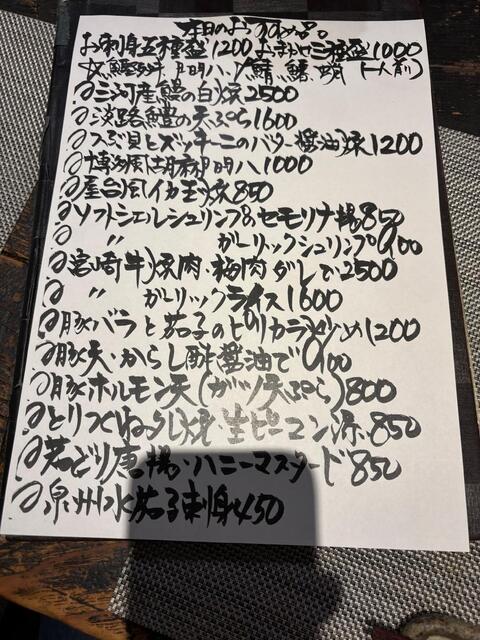 本日のおすすめ品。
お刺身五種盛1200 おまかせ三種盛1000
鯖、鱧、(一人前)
三河産鱧の白焼2500
淡路鱧の天ぷら1600
つぶ貝とズッキーニのバター醤油焼1200
博多風胡麻1000
屋台風イカ玉焼850
ソフトシェルシュリンプ&セモリナ揚850
〃 ガーリックシュリンプ900
宮崎牛焼肉・梅肉ダレで2500
〃 ガーリックライス1600
豚バラと茄子のピリカラ炒め1200
豚天・からし酢醤油で900
豚ホルモン天(ガツ天ぷら)800
とりつくね串焼・生ピーマン添850
若どり唐揚・ハニーマスタード850
泉州水茄子刺身450